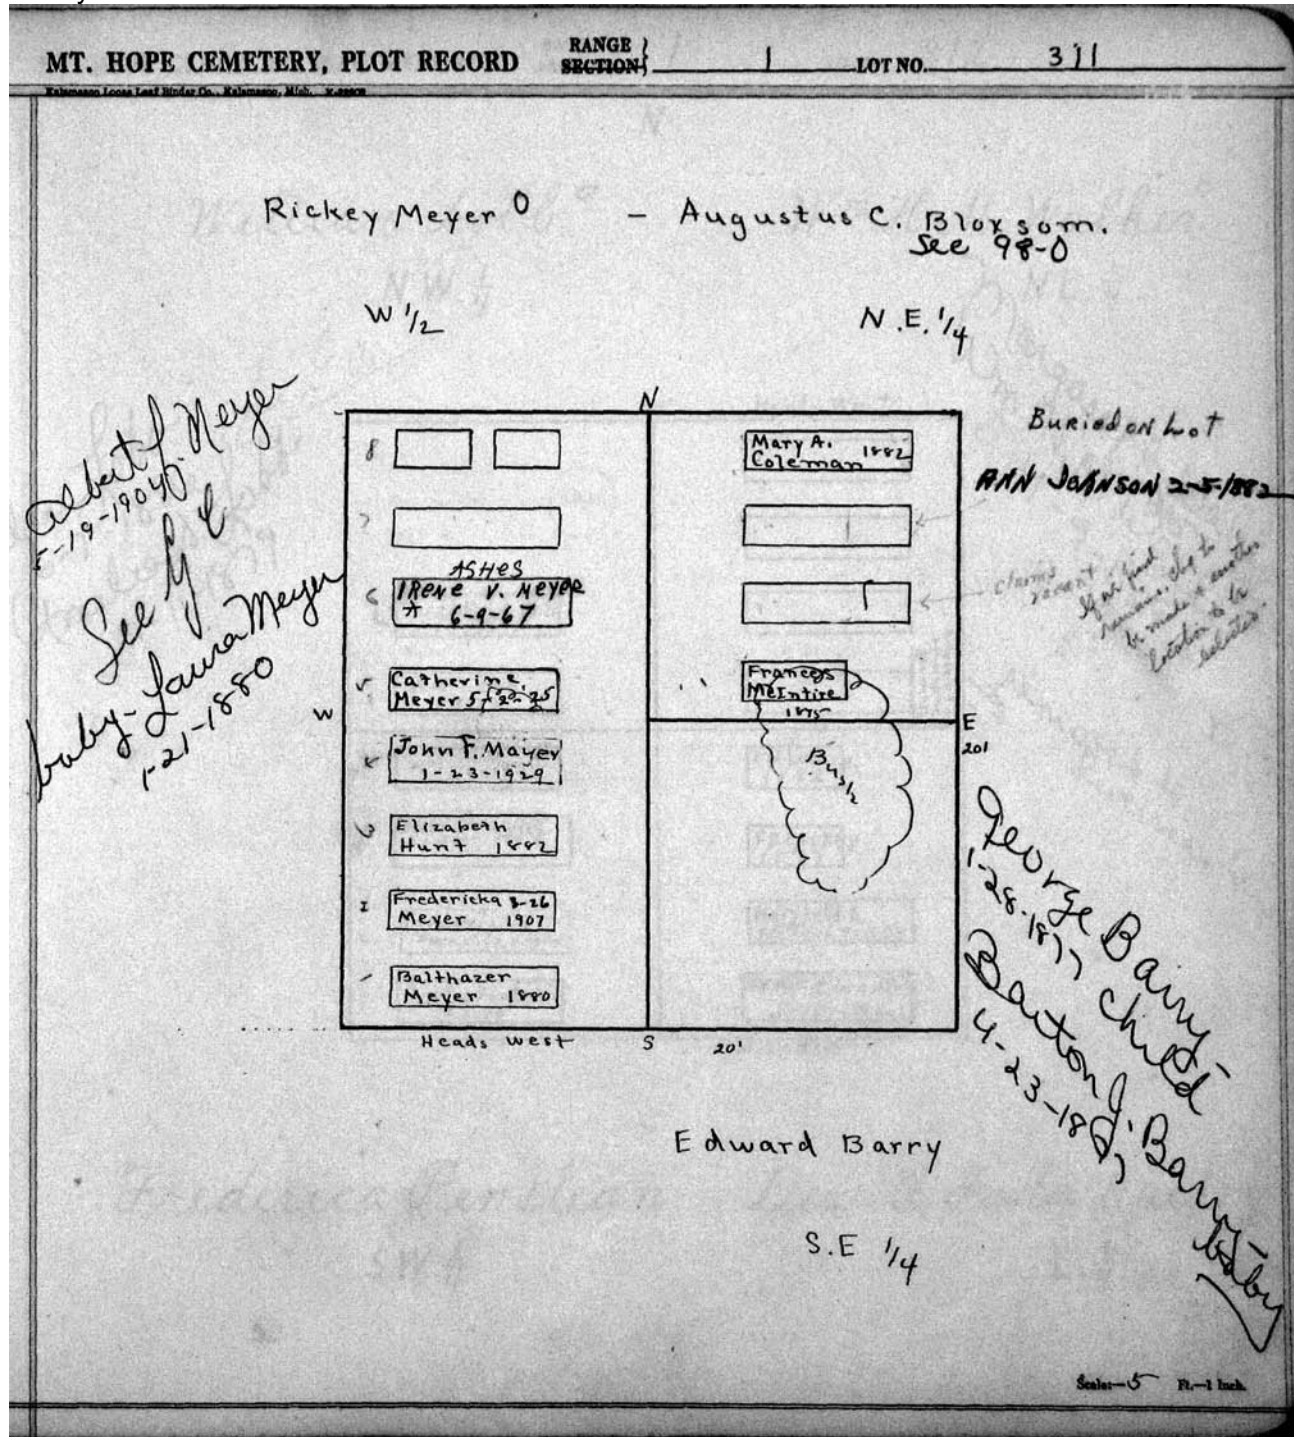 MT. HOPE CEMETERY, PLOT RECORD RANGE SECTION 1 LOT NO. 311
Kalamazoo Loose Leaf Binder Co., Kalamazoo, Mich.
Rickey Meyer O — Augustus C. Bloxsom.
See 98-0
W 1/2
N.E. 1/4
Albert J. Meyer
5-19-1904
See G
baby-Laura Meyer
1-21-1880
N
8
Mary A. 1882
Coleman
Buried on Lot
ANN JOHNSON 2-5-1882
7
claims
vacant
If we find
remains, chg to
be made & another
location to be
selected.
6
ASHES
IRENE V. MEYER
* 6-9-67
5
Catherine
Meyer 5-22-25
Frances
McIntire
1875
W
E
20'
John F. Mayer
1-23-1929
Bush
Elizabeth
Hunt 1882
Fredericka 3-26
Meyer 1907
Balthazer
Meyer 1880
Heads West
S
20'
George Barry-
1-28-1877 child
Barton J. Barry-
4-23-18
baby
Edward Barry
S.E 1/4
Scale:—5 Ft.—1 Inch.